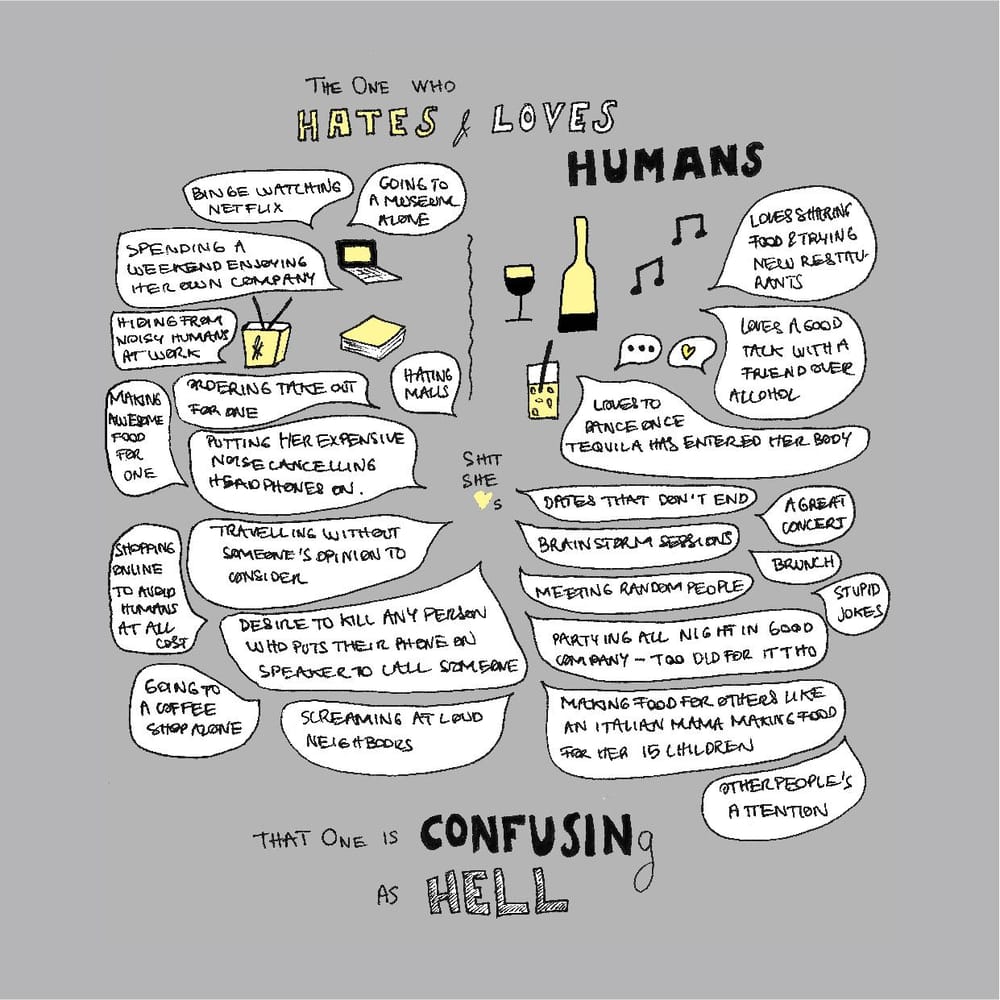 THE ONE WHO
HATES & LOVES
HUMANS
BINGE WATCHING
NETFLIX
GOING TO
A MUSEUM
ALONE
SPENDING A
WEEKEND ENJOYING
HER OWN COMPANY
HIDING FROM
NOISY HUMANS
AT WORK
HATING
MALLS
ORDERING TAKE OUT
FOR ONE
MAKING
AWESOME
FOOD
FOR
ONE
PUTTING HER EXPENSIVE
NOISE CANCELLING
HEADPHONES ON.
TRAVELLING WITHOUT
SOMEONE'S OPINION TO
CONSIDER
SHOPPING
ONLINE
TO AVOID
HUMANS
AT ALL
COST
DESIRE TO KILL ANY PERSON
WHO PUTS THEIR PHONE ON
SPEAKER TO CALL SOMEONE
GOING TO
A COFFEE
SHOP ALONE
SCREAMING AT LOUD
NEIGHBOORS
SHIT
SHE
S
LOVES SHARING
FOOD & TRYING
NEW RESTAU-
RANTS
LOVES A GOOD
TALK WITH A
FRIEND OVER
ALCOHOL
LOVES TO
DANCE ONCE
TEQUILA HAS ENTERED HER BODY
DATES THAT DON'T END
A GREAT
CONCERT
BRAINSTORM SESSIONS
BRUNCH
MEETING RANDOM PEOPLE
STUPID
JOKES
PARTYING ALL NIGHT IN GOOD
COMPANY - TOO OLD FOR IT THO
MAKING FOOD FOR OTHERS LIKE
AN ITALIAN MAMA MAKING FOOD
FOR HER 15 CHILDREN
OTHER PEOPLE'S
ATTENTION
THAT ONE IS CONFUSINg
AS HELL